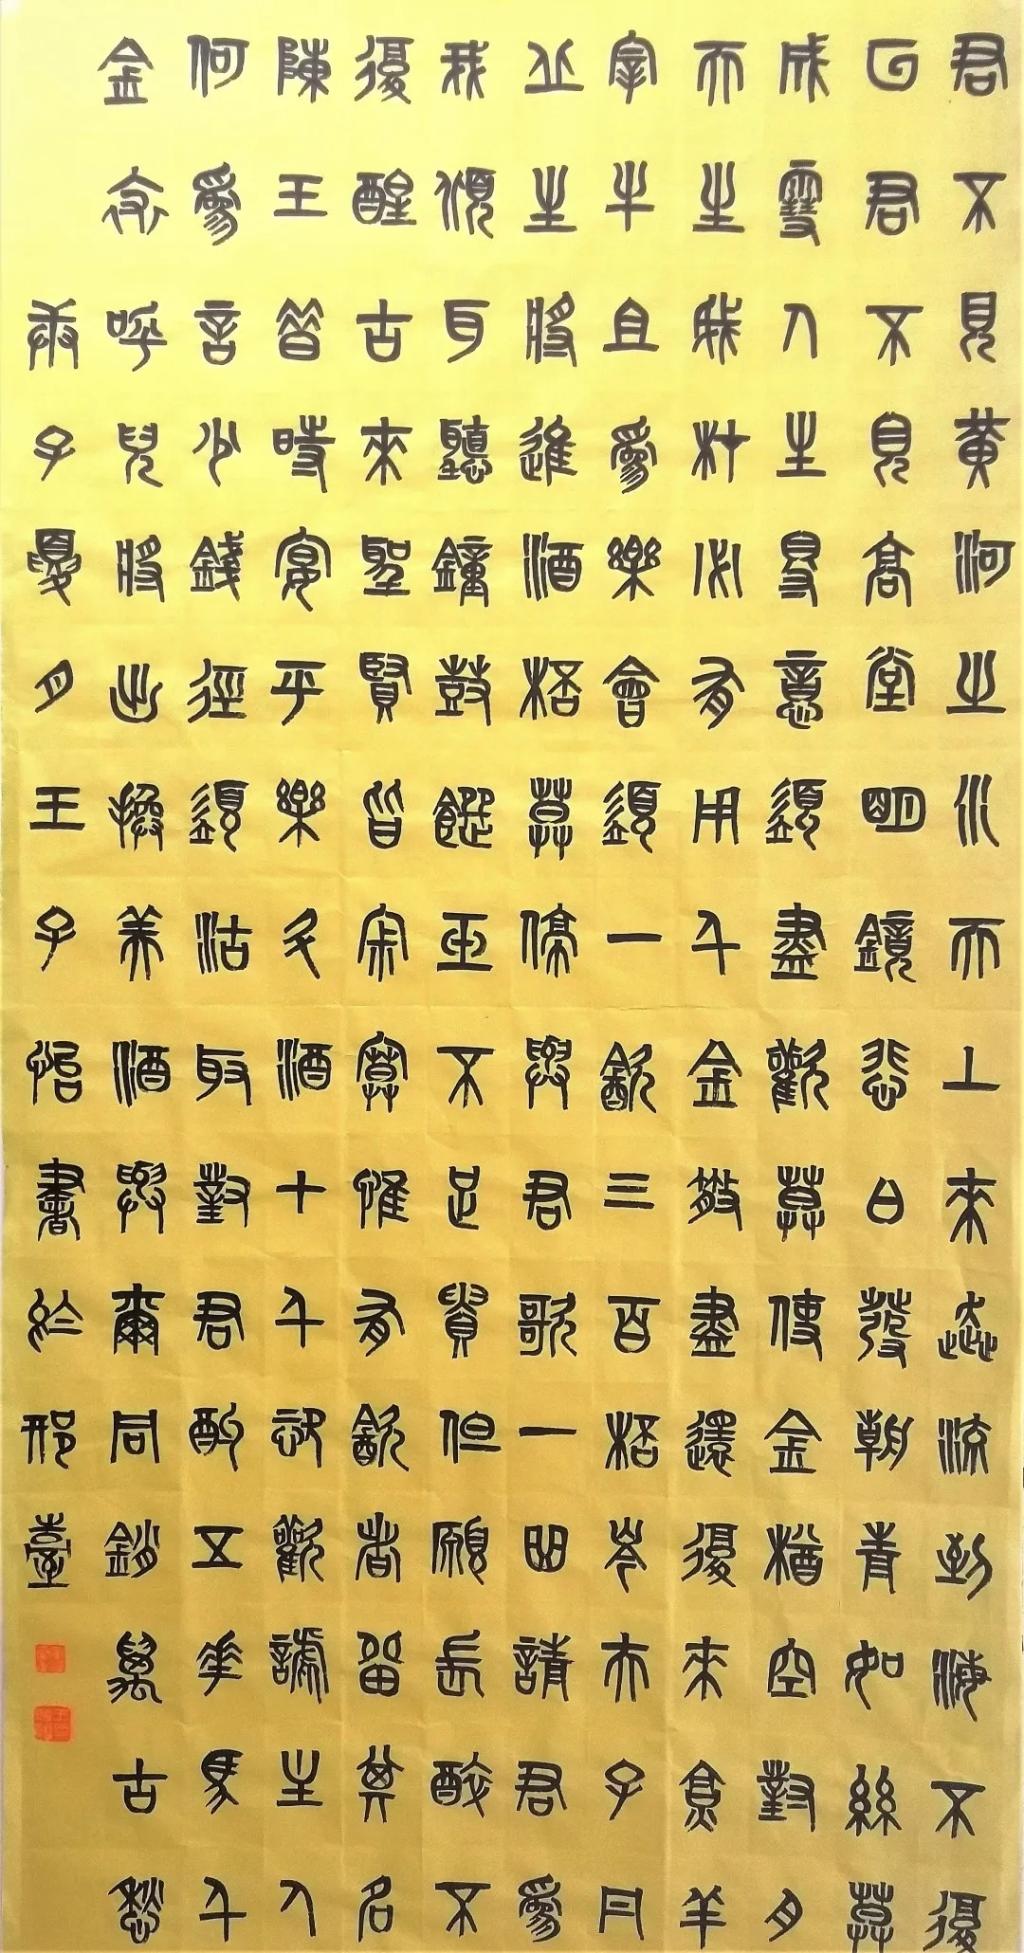 君不見黃河之水天上來奔流到海不復
回君不見高堂明鏡悲白髮朝青如絲莫
成雪人生得意須盡歡莫使金樽空對月
天生我材必有用千金散盡還復來烹羊
宰牛且為樂會須一飲三百杯岑夫子丹
丘生將進酒杯莫停與君歌一曲請君為
我傾耳聽鐘鼓饌玉不足貴但願長醉不
復醒古來聖賢皆寂寞惟有飲者留其名
陳王昔時宴平樂斗酒十千恣歡謔主人
何為言少錢徑須沽取對君酌五花馬千
金裘呼兒將出換美酒與爾同銷萬古愁
庚子夏月王子怡書於邢臺